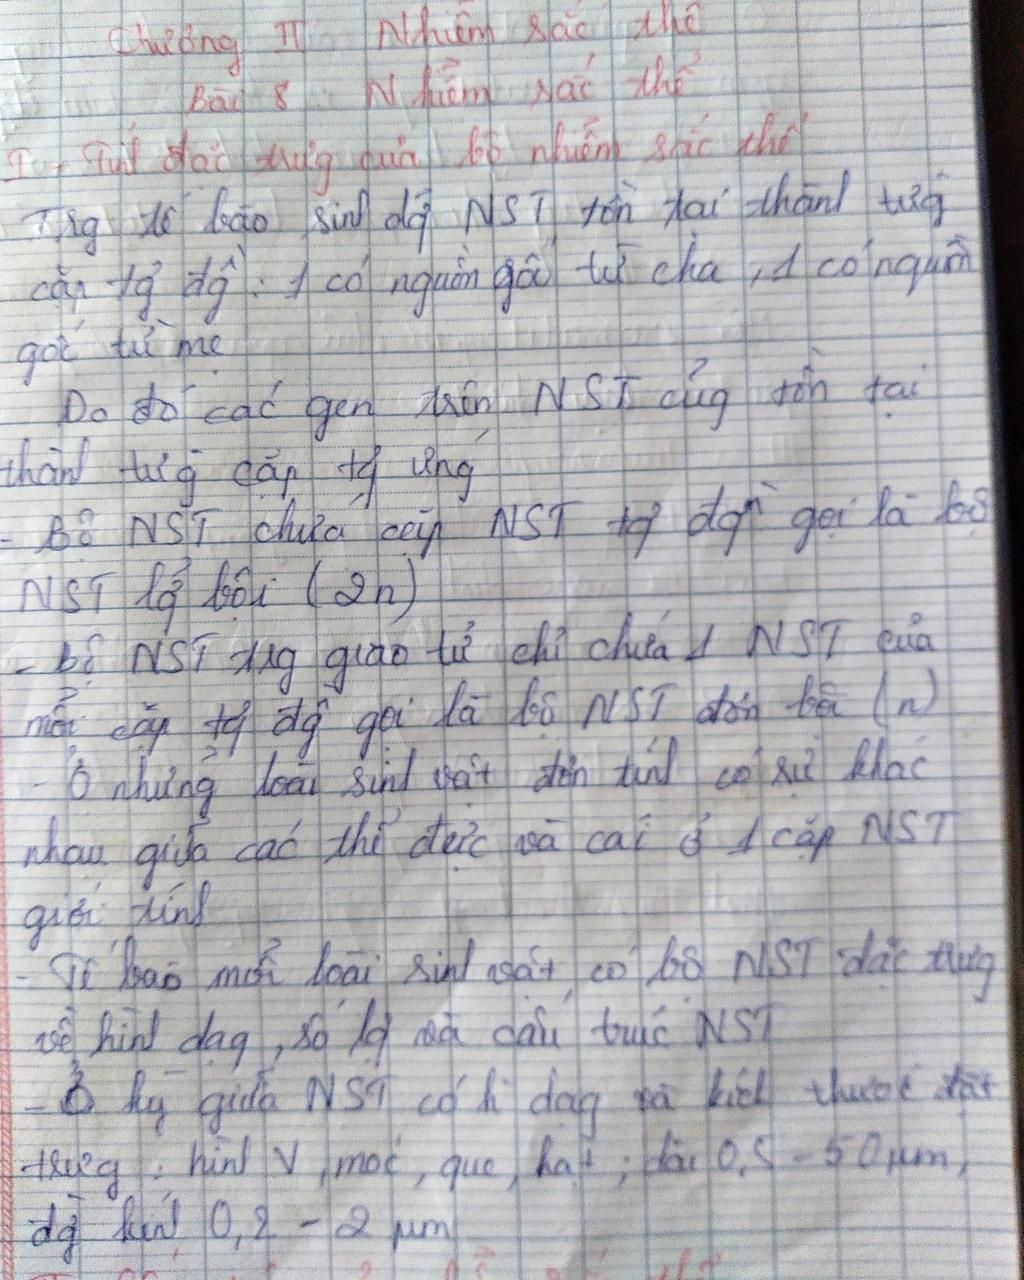 Chương II Nhiễm sắc thể
Bài 8 : Nhiễm sắc thể
I. Tính đặc trưng của bộ nhiễm sắc thể
Trg tế bào sinh dg NST tồn tại thành từg
cặp tg đg : 1 có nguồn gốc từ cha, 1 có nguồn
gốc từ mẹ
Do đó các gen trên NST cũg tồn tại
thành từg cặp tg ứng
- Bộ NST chứa cặp NST tg đg gọi là bộ
NST lg bội (2n)
- bộ NST trg giao tử chỉ chứa 1 NST của
mỗi cặp tg đg gọi là bộ NST đơn bội (n)
- Ở những loài sinh vật đơn tính có sự khác
nhau giữa các thể đực và cái ở 1 cặp NST
giới tính
- Tế bào mỗi loài sinh vật có bộ NST đặc trưng
về hình dạg, số lg và cấu trúc NST
- Ở kỳ giữa NST có h dạg và kích thước đặc
trưg : hình V, móc, que, hạt ; dài 0,5 - 50 μm,
đg kính 0,2 - 2 μm